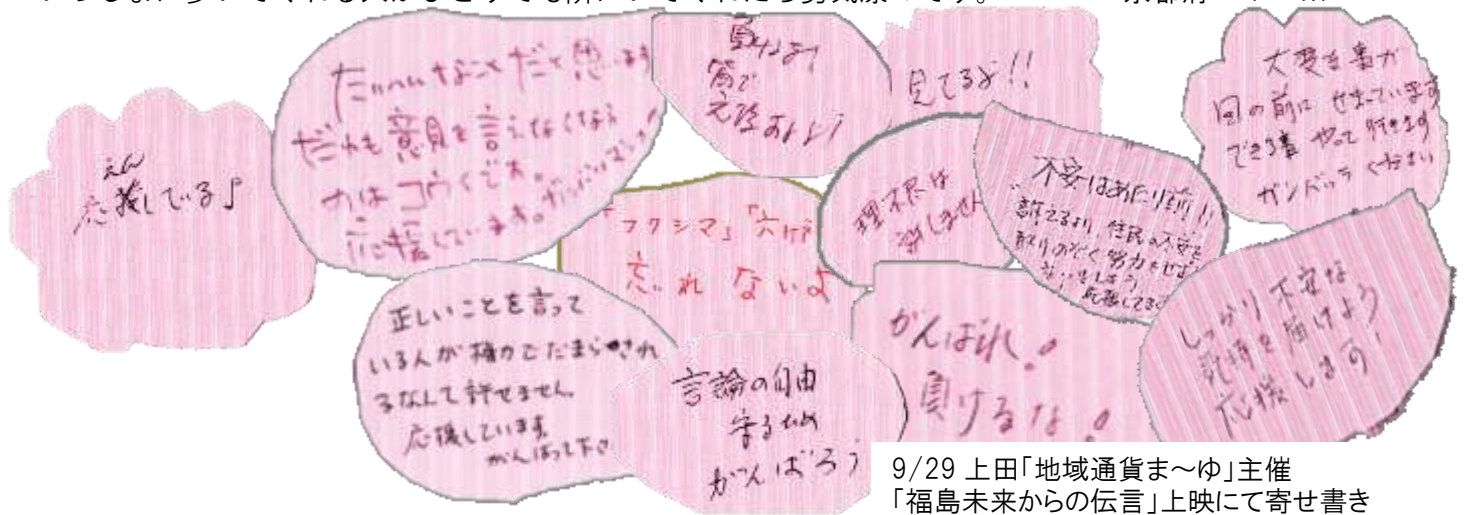 応援している♪
えん
たいへんなことだと思います
だれも意見を言えなくなる
のはコワイです。
応援しています。ガンバッテ
負けるな!
皆で
見てるよ!!
大変な事が
目の前にせまっています
できる事やって行きます
ガンバッテください
理不尽は
許しません
不安はあたり前!!
訴えるより住民の不安を
取りのぞく努力をせよ
応援してるよ
「フクシマ」「六ヶ所」
忘れないよ
正しいことを言って
いる人が権力でだまらされ
るなんて許せません
応援しています。
がんばって下さい
言論の自由
守るため
がんばろう
がんばれ!
負けるな!
しっかり不安な
気持を届けよう
応援します!
9/29 上田「地域通貨ま〜ゆ」主催
「福島未来からの伝言」上映にて寄せ書き